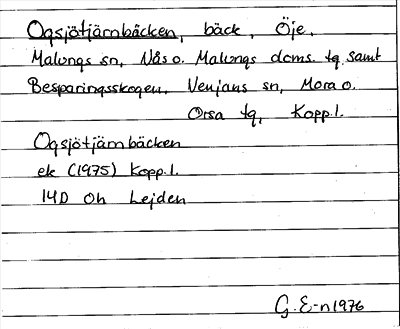 Oggsjötjärnbäcken, bäck, Öje,
Malungs sn, Nås o. Malungs doms. tg samt
Besparingsskogen, Venjans sn, Mora o.
Orsa tg, Kopp.l.
Oggsjötjärnbäcken
ek (1975) Kopp.l.
14D 0h Lejden
G.E-n 1976